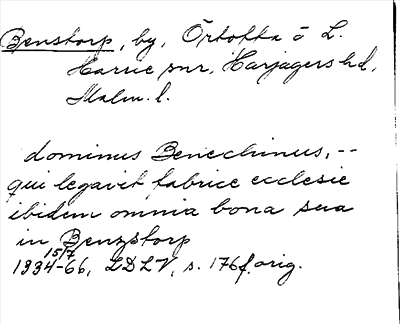 Benstorp, by, Örtofta o L.
Harrie snr, Harjagers hd,
Malm. l.
dominus Benechinus, --
qui legavit fabrice ecclesie
ibidem omnia bona sua
in Benzstorp
15/7
1334-66, LDLV, s. 176f. orig.